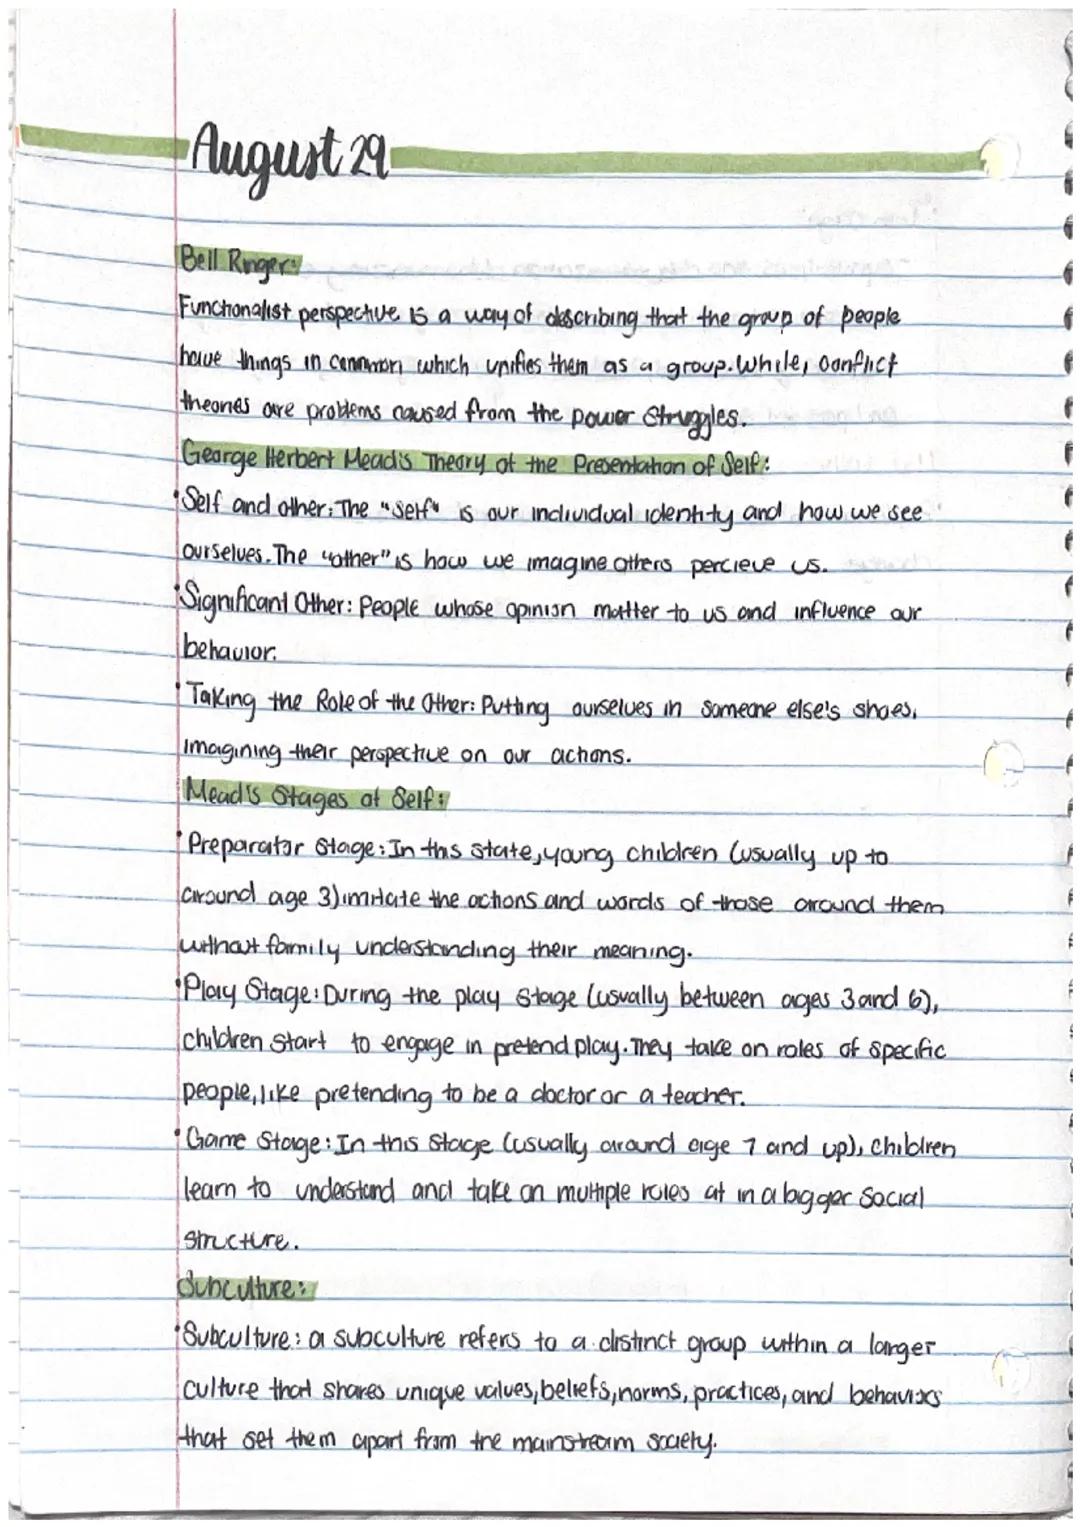 August 29
Bell Ringer:
Functionalist perspective is a way of describing that the group of people
have things in common which unifies them as a group. While, conflict
theories are problems caused from the power struggles.
George Herbert Mead's Theory of the Presentation of Self:
•Self and other: The "self" is our individual identity and how we see
ourselves. The "other" is how we imagine others percieve us.
•Significant Other: People whose opinion matter to us and influence our
behavior.
•Taking the Role of the Other: Putting ourselves in someone else's shoes,
imagining their perspective on our actions.
Mead's Stages of Self:
•Preparator Stage: In this state, young children (usually up to
around age 3) imitate the actions and words of those around them
without family understanding their meaning.
•Play Stage: During the play stage (usually between ages 3 and 6),
children start to engage in pretend play. They take on roles of specific
people, like pretending to be a doctor or a teacher.
•Game Stage: In this stage (usually around age 7 and up), children
learn to understand and take on multiple roles at in a bigger social
structure.
Subculture:
•Subculture: a subculture refers to a distinct group within a larger
culture that shares unique values, beliefs, norms, practices, and behaviors
that set them apart from the mainstream society.